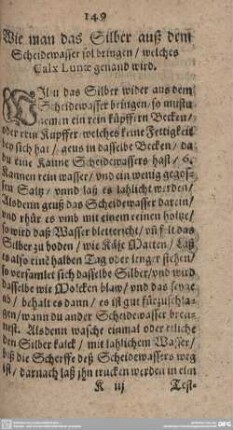 149
Wie man das Silber auß dem
Scheidewasser sol bringen / welches
Calx Lunæ genand wird.
Wilu das Silber wider aus dem
Scheidewasser bringen / so mustu
nemen ein rein küpffern Becken /
oder rein Kupffer / welches keine Fettigkeit
bey sich hat / geus in dasselbe Becken / da
du eine Kanne Scheidewassers hast / 6.
Kannen rein wasser / vnd ein wenig gegos-
sen Saltz / vnnd laß es lahlicht werden /
Alsdenn geuß das Scheidewasser darein /
vnd rhür es vmb mit einem reinen holtze /
so wird daß Wasser / vñ felt das
Silber zu boden / wie Käse Matten / Laß
es also eine halben Tag oder lenger stehen /
so versamlet sich dasselbe Silber / vnd wird
dasselbe wie Molcken blaw / vnd das
ab / behalt es dann / es ist gut fürzuschla-
gen / wann du ander Scheidewasser bren-
nest. Alsdenn wasche einmal oder etliche
den Silber kalck / mit lahlichem Wasser /
biß die Scherffe deß Scheidewassers weg
ist / darnach laß jhn trucken werden in ein
K iij Test-